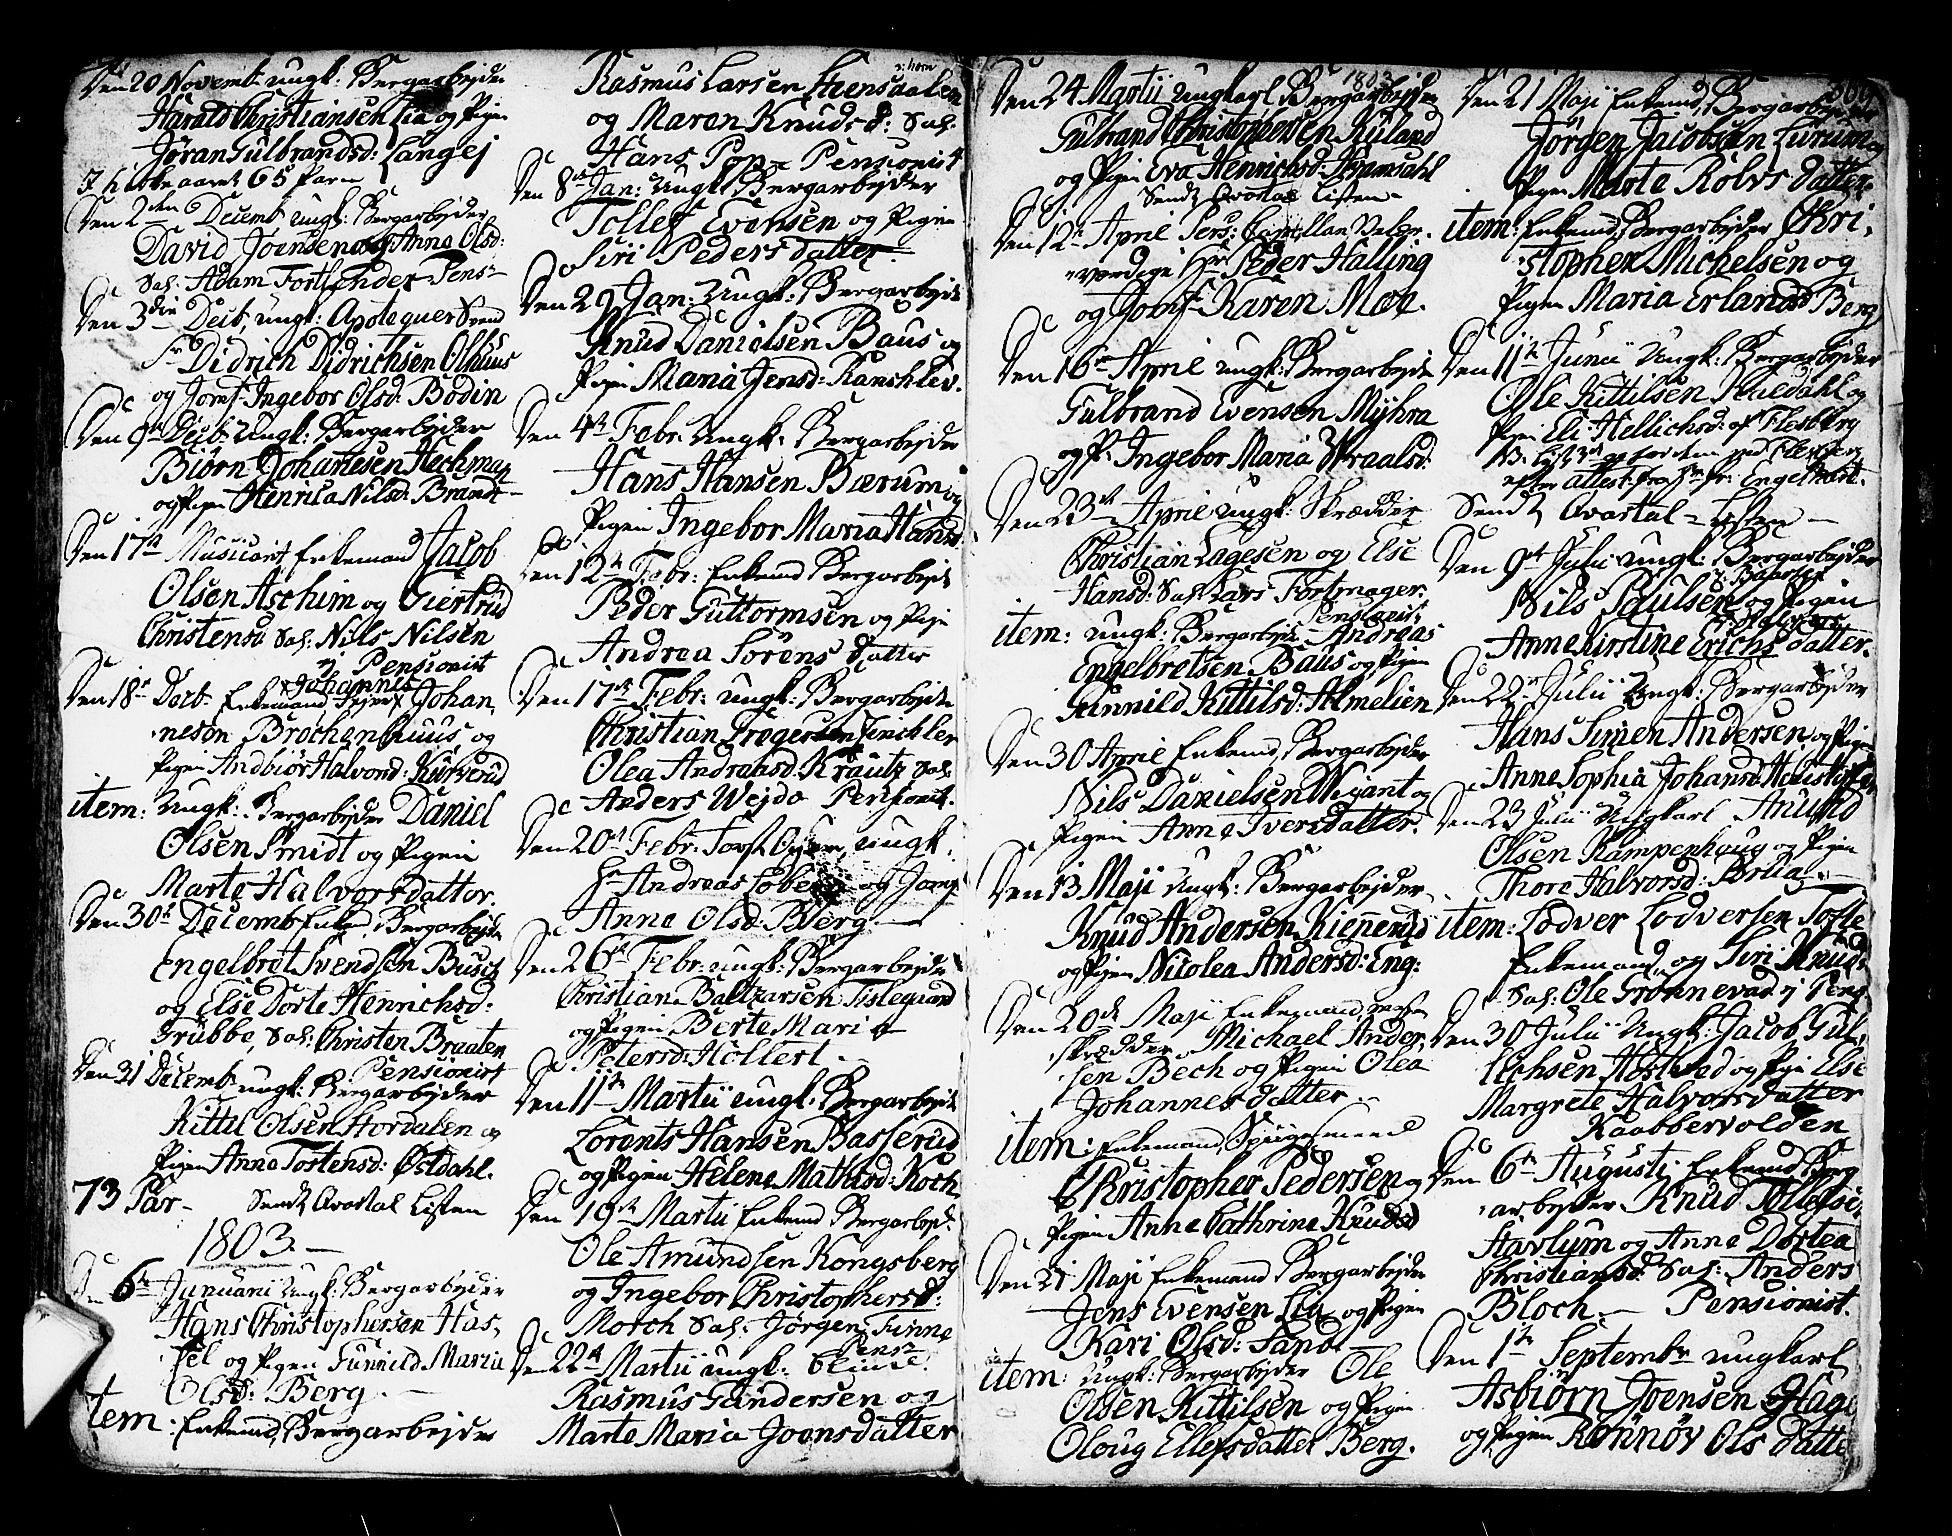 Den 20 Novemb: ungk: Bergarbejder
Harald Christiansen Lia og Pigen
Jøran Gulbrandsd: Langej
I kirkeaaret 65 Parn
Den 2den Decemb ungk: Bergarbejder
David Joensen og Anne Olsd:
Sal: Adam Pens:
Den 3die Decb, ungk: Apotequer Svend
Sr Didrich Didrichsen Olhuus
og Jomf: Ingebor Olsd: Bodin
Den 9de Decb: Ungk: Bergarbejder
Biørn Johannesen Hechman
og Pigen Henrica Nilsd: Brandt
Den 17de Musicant, Enkemand Jacob
Olsen Aschim og Giertrud
Christensd Sal: Nils Nilsen
Pensionist
Johannes
Den 18de Decb. Enkemand Johan,
nesen Brochenhuus og
Pigen Andbiør Halvorsd: Kørverud
item: Ungk: Bergarbejder Daniel
Olsen Smidt og Pigen
Marte Halvorsdatter.
Den 30te Decemb Enkemd, Bergarbejder
Engelbret Svendsen Busch
og Else Dorte Henrichsd:
Grubbe, Sal: Christen Braaten
Pensionist
Den 31 Decemb ungk: Bergarbejder
Kittil Olsen Hordalen og
Pigen Anne Tostensd: Østdahl.
73 Par - Sendt Qvartal Listen
1803. -
Den 6te Januarii Ungk: Bergarbejder
Hans Christophersen Has,
sel og Pigen Gunnild Maria
Olsd: Berg.
Item: Enkemd, Bergarbejder
Rasmus Larsen
og Maren Knudsd: Sal:
Hans Pop Pensionist
Den 8de Jan: Ungk: Bergarbejder
Tollef Evensen og Pigen
Siri Pedersdatter.
Den 29 Jan: Ungk: Bergarbejder
Knud Danielsen Baus og
Pigen Maria Jensd: Ramshlev.
Den 4de Febr: Ungk: Bergarbejder
Hans Hansen Bærum og
Pigen Ingebor Maria Hansd
Den 12te Febr: Enkemd Bergarbejder
Peder Guttormsen og Pige
Andrea Sørens datter
Den 17de Febr: ungk: Bergarbejder
Christian Trøgersen Finchler
Olea Andreasd: Krautz Sal:
Anders Wejdo Pensionist.
Den 20de Febr: ungk:
Hr Andreas og Jomf
Anne Olsd: Berg.
Den 26de Febr: ungk: Bergarbejder
Christian Baltzarsen Tislegaard
og Pigen Berte Maria
Petersd: Hollert.
Den 11te Martii ungk: Bergarbejder
Lorents Hansen Basserud
og Pigen Helene Mathisd: Koch
Den 19de Martii Enkemd Bergarbejd:
Ole Amundsen Kongsberg
og Ingebor Christophersd:
Morch Sal: Jørgen Finne
Pensn
Den 22de Martii ungk:
Rasmus Gundersen og
Marte Maria Joensdatter
1803
Den 24 Martii Ungkarl Bergarbejder
Gulbrand Christophersen Ruland
og Pigen Eva Henrichsd:
Sendt Qvartal Listen
Den 12te April Pers: Capellan Velær,
værdige Hr Peder Halling
og Jomf: Karen Moe.
Den 16de April ungk: Bergarbejder
Gulbrand Evensen Myhra
og P: Ingebor Maria
Den 23de April ungk: Skrædder
Christian Lagesen og Else
Hansd: Sal: Lars Fortmager,
Pensionist.
item: ungk: Bergarbejder Andreas
Engelbretsen Baus og Pigen
Gunnild Kittilsd: Almelien
Den 30 April Enkemd, Bergarbejder
Nils Danielsen Wigant og
Pigen Anne Iversdatter.
Den 13 Maji Ungk: Bergarbejder
Knud Andersen Kiennerud
og Pigen Nicolea Andersd: Eng:
Den 20de Maji Enkemand, mester
skrædder Michael Ander,
sen Bech og Pigen Olea
Johannesdatter.
item: Enkemand,
Christopher Pedersen og
Pigen Anne Cathrine Knudsd
Den 21 Maji Enkemand Bergarbejder
Jens Evensen Lia og Pigen
Kari Olsd: Sand
item: ungk: Bergarbejder Ole
Olsen Kittilsen og Pigen
Oloug Ellefsdatter Berg.
Den 21 Maji Enkemd, Bergarbejder
Jørgen Jacobsen Lurum og
Pigen Marte Rolvs datter.
item: Enkemd, Bergarbejder Chri,
stopher Michelsen og
Pigen Maria Erlandsd Berg
Den 11te Junii Ungk: Bergarbejder
Ole Kittilsen og
Pigen Eli Hellichsd: af Flesberg
efter Attest: fra Hr: Engelhart.
Sendt Qvartal - Listen -
Den 9de Julii ungk: Bergarbejder
Nils Paulsen og Pigen
Anne Kirstine Erichsdatter.
Den 22de Julii Ungk: Bergarbejder
Hans Simen Andersen og Pigen
Anne Sophia Johansd
Den 23 Julii Ungkarl Anund
Olsen Kampenhoug og Pigen
Thore Halvorsd: Bolia.
item: Lodver Lodversen Tofte
Enkemand og Siri Knudsd:
Sal: Ole Grønnevad, Pens:
Den 30 Julii Ungk: Jacob Gul,
lichsen Hostvad og Pige Else
Margrete Halvorsdatter
Raabbervolden
Den 6te Augustj Enkemd, Berg
arbejder Knud Tollefsen
Havlum og Anne Dortea
Christiansd: Sal: Anders
Bloch. - Pensionist.
Den 1te Septembr ungkarl
Asbiørn Joensen Hage
og Pigen Rønnøv Olsdatter